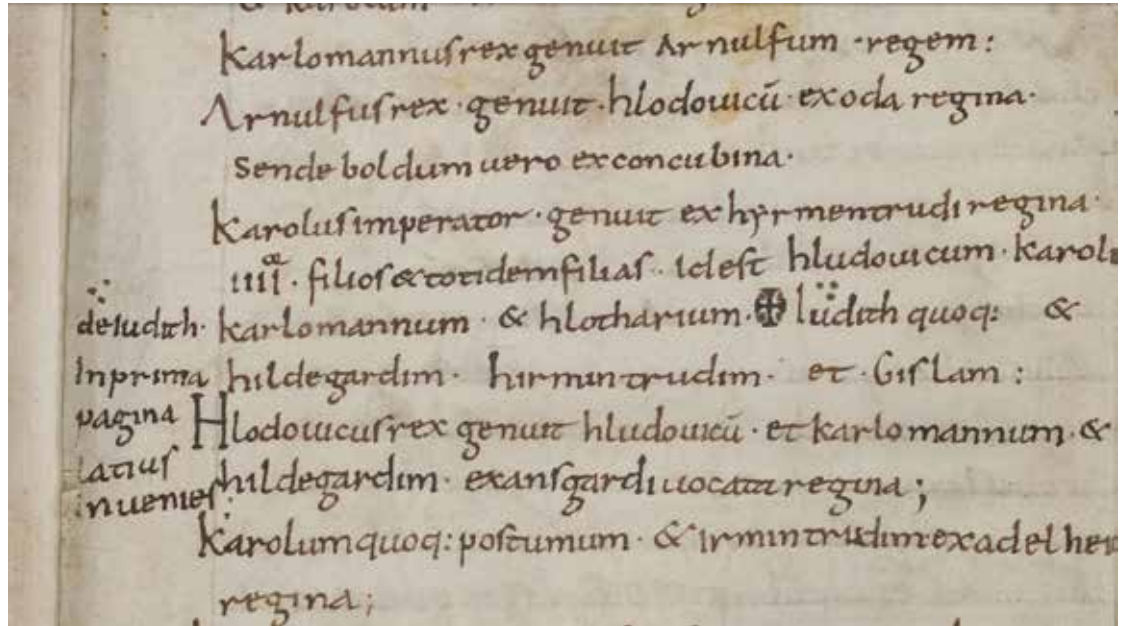 Karlomannus rex genuit Arnulfum · regem :
Arnulfus rex · genuit · hlodouicū · exoda regina ·
Sende boldum uero exconcubina ·
Karolus imperator · genuit ex hyrmentrudi regina ·
IIIIor · filios & totidem filias · Id est hludouicum · Karolu
de Iudith · Karlomannum · & hlotharium · ⊕ Iudith quoq: &
In prima hildegardim · hirmintrudim · et · Gislam :
pagina Hlodouicus rex genuit hludouicū · et Karlomannum · &
latius hildegardim · exansgardi uocata regina ;
inuenies :
Karolum quoq: postumum · & irmintrudim exadelhei
regina ;